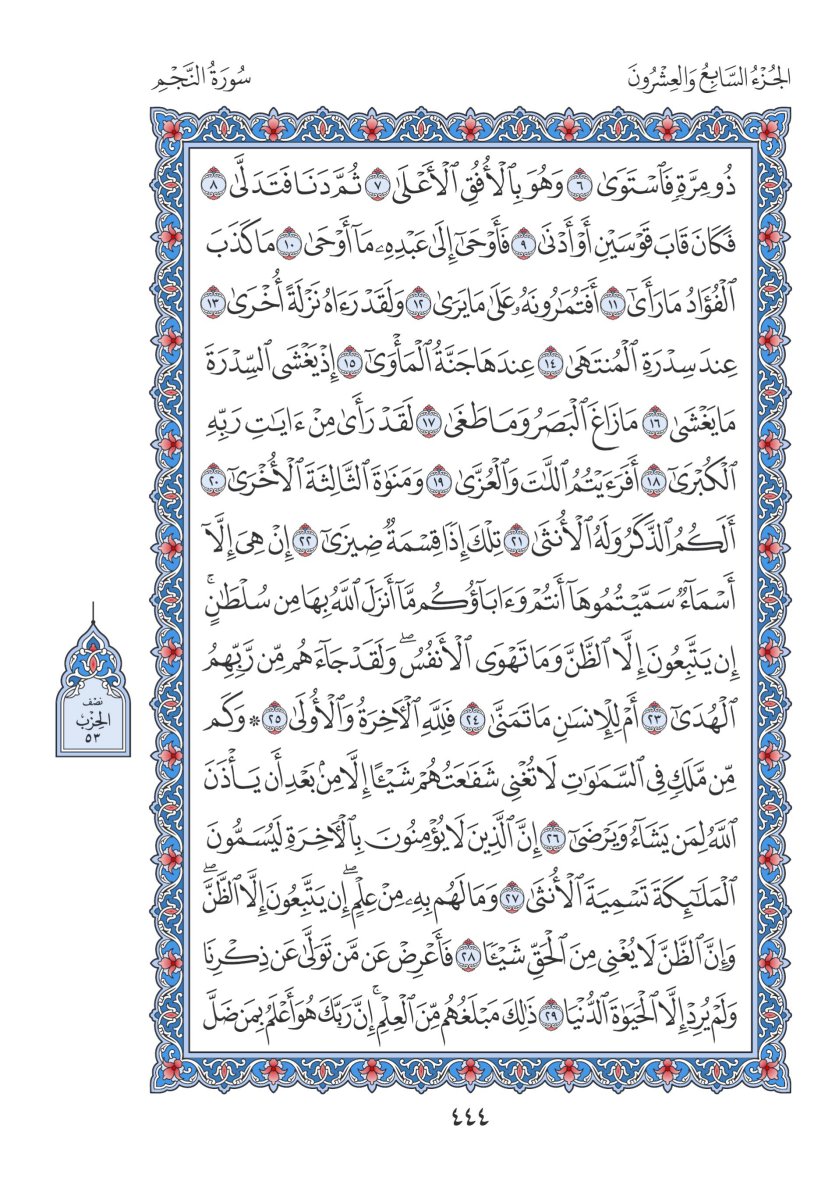 الجُزْءُ السَّابِعُ وَالعِشْرُونَ
سُورَةُ النَّجْمِ
ذُو مِرَّةٍ فَٱسْتَوَىٰ ٦ وَهُوَ بِٱلْأُفُقِ ٱلْأَعْلَىٰ ٧ ثُمَّ دَنَا فَتَدَلَّىٰ ٨
فَكَانَ قَابَ قَوْسَيْنِ أَوْ أَدْنَىٰ ٩ فَأَوْحَىٰٓ إِلَىٰ عَبْدِهِۦ مَآ أَوْحَىٰ ١٠ مَا كَذَبَ
ٱلْفُؤَادُ مَا رَأَىٰٓ ١١ أَفَتُمَٰرُونَهُۥ عَلَىٰ مَا يَرَىٰ ١٢ وَلَقَدْ رَءَاهُ نَزْلَةً أُخْرَىٰ ١٣
عِندَ سِدْرَةِ ٱلْمُنتَهَىٰ ١٤ عِندَهَا جَنَّةُ ٱلْمَأْوَىٰٓ ١٥ إِذْ يَغْشَى ٱلسِّدْرَةَ
مَا يَغْشَىٰ ١٦ مَا زَاغَ ٱلْبَصَرُ وَمَا طَغَىٰ ١٧ لَقَدْ رَأَىٰ مِنْ ءَايَٰتِ رَبِّهِ
ٱلْكُبْرَىٰٓ ١٨ أَفَرَءَيْتُمُ ٱللَّٰتَ وَٱلْعُزَّىٰ ١٩ وَمَنَوٰةَ ٱلثَّالِثَةَ ٱلْأُخْرَىٰٓ ٢٠
أَلَكُمُ ٱلذَّكَرُ وَلَهُ ٱلْأُنثَىٰ ٢١ تِلْكَ إِذًا قِسْمَةٌ ضِيزَىٰٓ ٢٢ إِنْ هِىَ إِلَّآ
أَسْمَآءٌ سَمَّيْتُمُوهَآ أَنتُمْ وَءَابَآؤُكُم مَّآ أَنزَلَ ٱللَّهُ بِهَا مِن سُلْطَٰنٍۚ
إِن يَتَّبِعُونَ إِلَّا ٱلظَّنَّ وَمَا تَهْوَى ٱلْأَنفُسُۖ وَلَقَدْ جَآءَهُم مِّن رَّبِّهِمُ
ٱلْهُدَىٰٓ ٢٣ أَمْ لِلْإِنسَٰنِ مَا تَمَنَّىٰ ٢٤ فَلِلَّهِ ٱلْءَاخِرَةُ وَٱلْأُولَىٰ ٢٥ * وَكَم
مِّن مَّلَكٍ فِى ٱلسَّمَٰوَٰتِ لَا تُغْنِى شَفَٰعَتُهُمْ شَيْـًٔا إِلَّا مِنۢ بَعْدِ أَن يَأْذَنَ
ٱللَّهُ لِمَن يَشَآءُ وَيَرْضَىٰٓ ٢٦ إِنَّ ٱلَّذِينَ لَا يُؤْمِنُونَ بِٱلْءَاخِرَةِ لَيُسَمُّونَ
ٱلْمَلَٰٓئِكَةَ تَسْمِيَةَ ٱلْأُنثَىٰ ٢٧ وَمَا لَهُم بِهِۦ مِنْ عِلْمٍۖ إِن يَتَّبِعُونَ إِلَّا ٱلظَّنَّۖ
وَإِنَّ ٱلظَّنَّ لَا يُغْنِى مِنَ ٱلْحَقِّ شَيْـًٔا ٢٨ فَأَعْرِضْ عَن مَّن تَوَلَّىٰ عَن ذِكْرِنَا
وَلَمْ يُرِدْ إِلَّا ٱلْحَيَوٰةَ ٱلدُّنْيَا ٢٩ ذَٰلِكَ مَبْلَغُهُم مِّنَ ٱلْعِلْمِۚ إِنَّ رَبَّكَ هُوَ أَعْلَمُ بِمَن ضَلَّ
نصف
الحزب
٥٣
٤٤٤